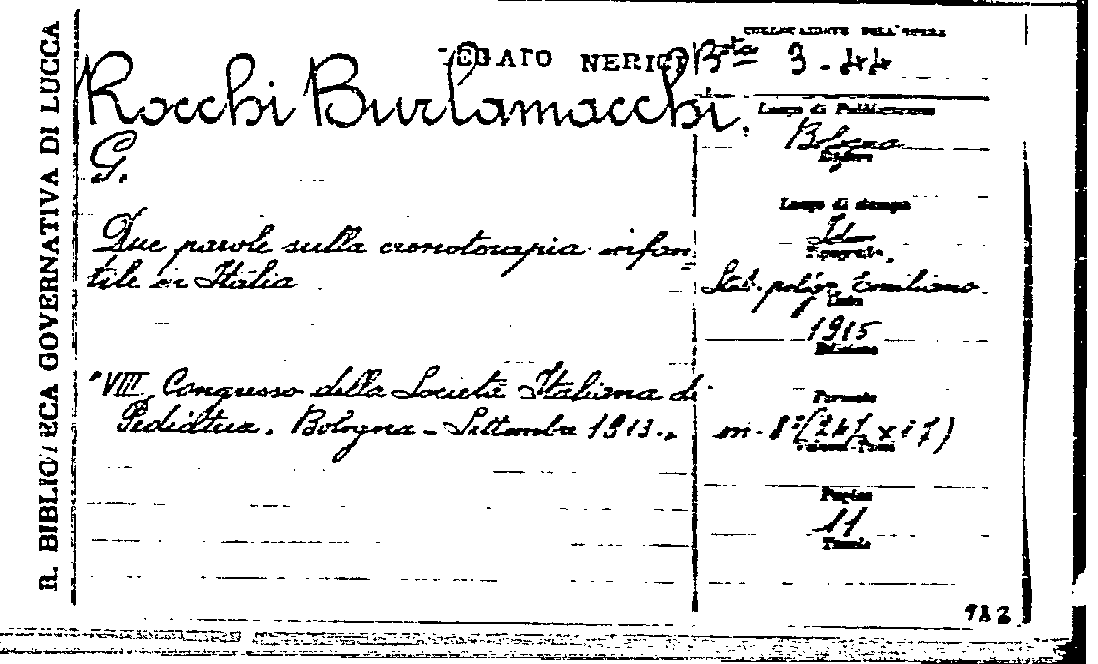 R. BIBLIOTECA GOVERNATIVA DI LUCCA
LEGATO NERICI
COLLOCAZIONE DELL'OPERA
Bsta 3-44
Rocchi Burlamacchi,
G.
Due parole sulla cronoterapia infan=
tile in Italia
"VIII Congresso della Società Italiana di
Pediatria. Bologna - Settembre 1913.„
Luogo di Pubblicazione
Bologna
Editore
Luogo di stampa
Idem
Tipografia
Stab. poligr. Emiliano
Data
1915
Edizione
Formato
in-8°(24½ x 17)
Pagine
11
Tavole